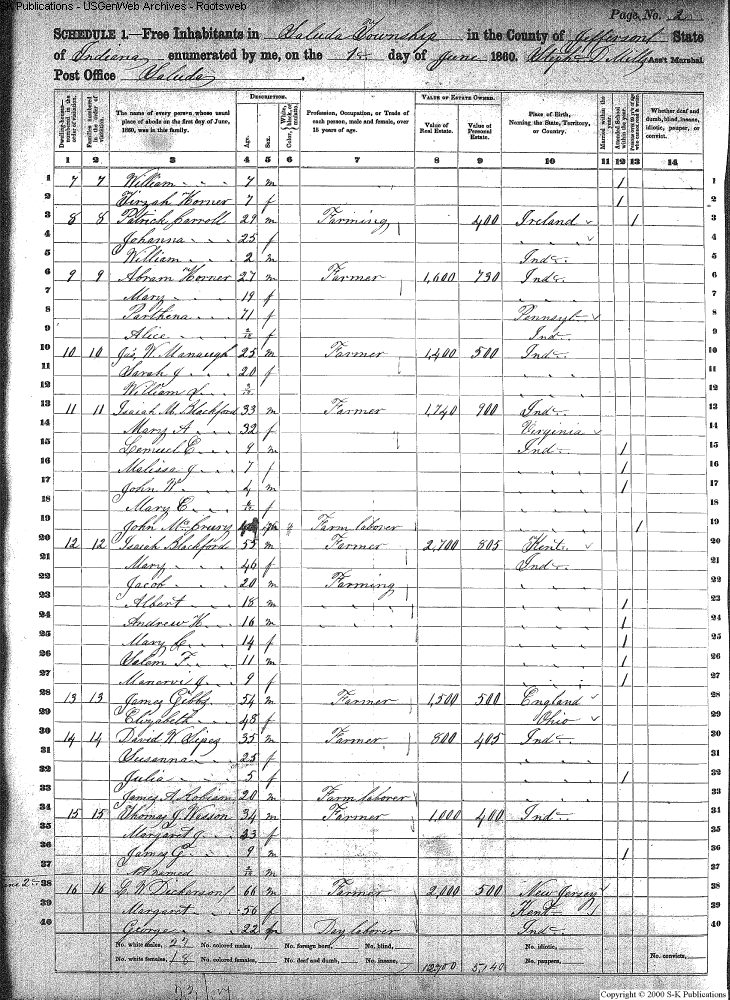 S-K Publications - USGenWeb Archives - Rootsweb
Page No. 2
SCHEDULE 1.—Free Inhabitants in Saluda Township in the County of Jefferson State
of Indiana enumerated by me, on the 1st day of June 1860. Ass't Marshal
Post Office Saluda.
DESCRIPTION. VALUE OF ESTATE OWNED.
Dwelling-houses—numbered in the order of visitation. Families numbered in the order of visitation. The name of every person whose usual place of abode on the first day of June, 1860, was in this family. Age. Sex. Color, White, black, or mulatto. Profession, Occupation, or Trade of each person, male and female, over 15 years of age. Value of Real Estate. Value of Personal Estate. Place of Birth, Naming the State, Territory, or Country. Married within the year. Attended School within the year. Persons over 20 y'rs of age who cannot read & write. Whether deaf and dumb, blind, insane, idiotic, pauper, or convict.
1 2 3 4 5 6 7 8 9 10 11 12 13 14
1 7 7 William " 7 m / 1
2 Tirzah Horner 7 f / 2
3 8 8 Patrick Carroll 29 m Farming 400 Ireland / 3
4 Johanna " 25 f " 4
5 William " 2 m Ind. 5
6 9 9 Abram Horner 27 m Farmer 1,600 730 Ind. 6
7 Mary " 19 f " 7
8 Parthena " 71 f Pennsyl. 8
9 Alice " f Ind. 9
10 10 10 Jas. W. Manaugh 25 m Farmer 1,400 500 Ind. 10
11 Sarah J. " 20 f " 11
12 William " 12
13 11 11 Isaiah M. Blackford 33 m Farmer 1,740 900 Ind. 13
14 Mary A. " 32 f Virginia 14
15 Lemuel E. " 9 m Ind. / 15
16 Malissa J. " 7 f " / 16
17 John W. " 4 m " / 17
18 Mary E. " f " 18
19 John McCrury Farm laborer " / 19
20 12 12 Isaiah Blackford 55 m Farmer 2,700 805 Kent. 20
21 Mary " 46 f Ind. 21
22 Jacob " 20 m Farming " 22
23 Albert " 18 m " " / 23
24 Andrew H. " 16 m " " / 24
25 Mary C. " 14 f " / 25
26 Salem F. " 11 m " / 26
27 Manervi J. " 9 f " / 27
28 13 13 James Gibbs 54 m Farmer 1,500 500 England 28
29 Elizabeth " 48 f Ohio 29
30 14 14 David W. Sipes 35 m Farmer 800 405 Ind. 30
31 Susanna " 25 f " 31
32 Julia " 5 f " / 32
33 James A. Robison 20 m Farm laborer " 33
34 15 15 Thomas J. Wasson 34 m Farmer 1,000 400 Ind. 34
35 Margaret J. " 33 f " 35
36 James G. " 9 m " / 36
37 Not named m " 37
38 16 16 Dickerson 66 m Farmer 2,000 500 New Jersey 38
39 Margaret " 56 f Kent. 39
40 George " 22 m Day laborer Ind. 40
No. white males, 22 No. colored males, No. foreign born, No. blind, No. idiotic,
No. white females, 18 No. colored females, No. deaf and dumb, No. insane, 12,700 5,140 No. paupers, No. convicts,
Copyright © 2000 S-K Publications